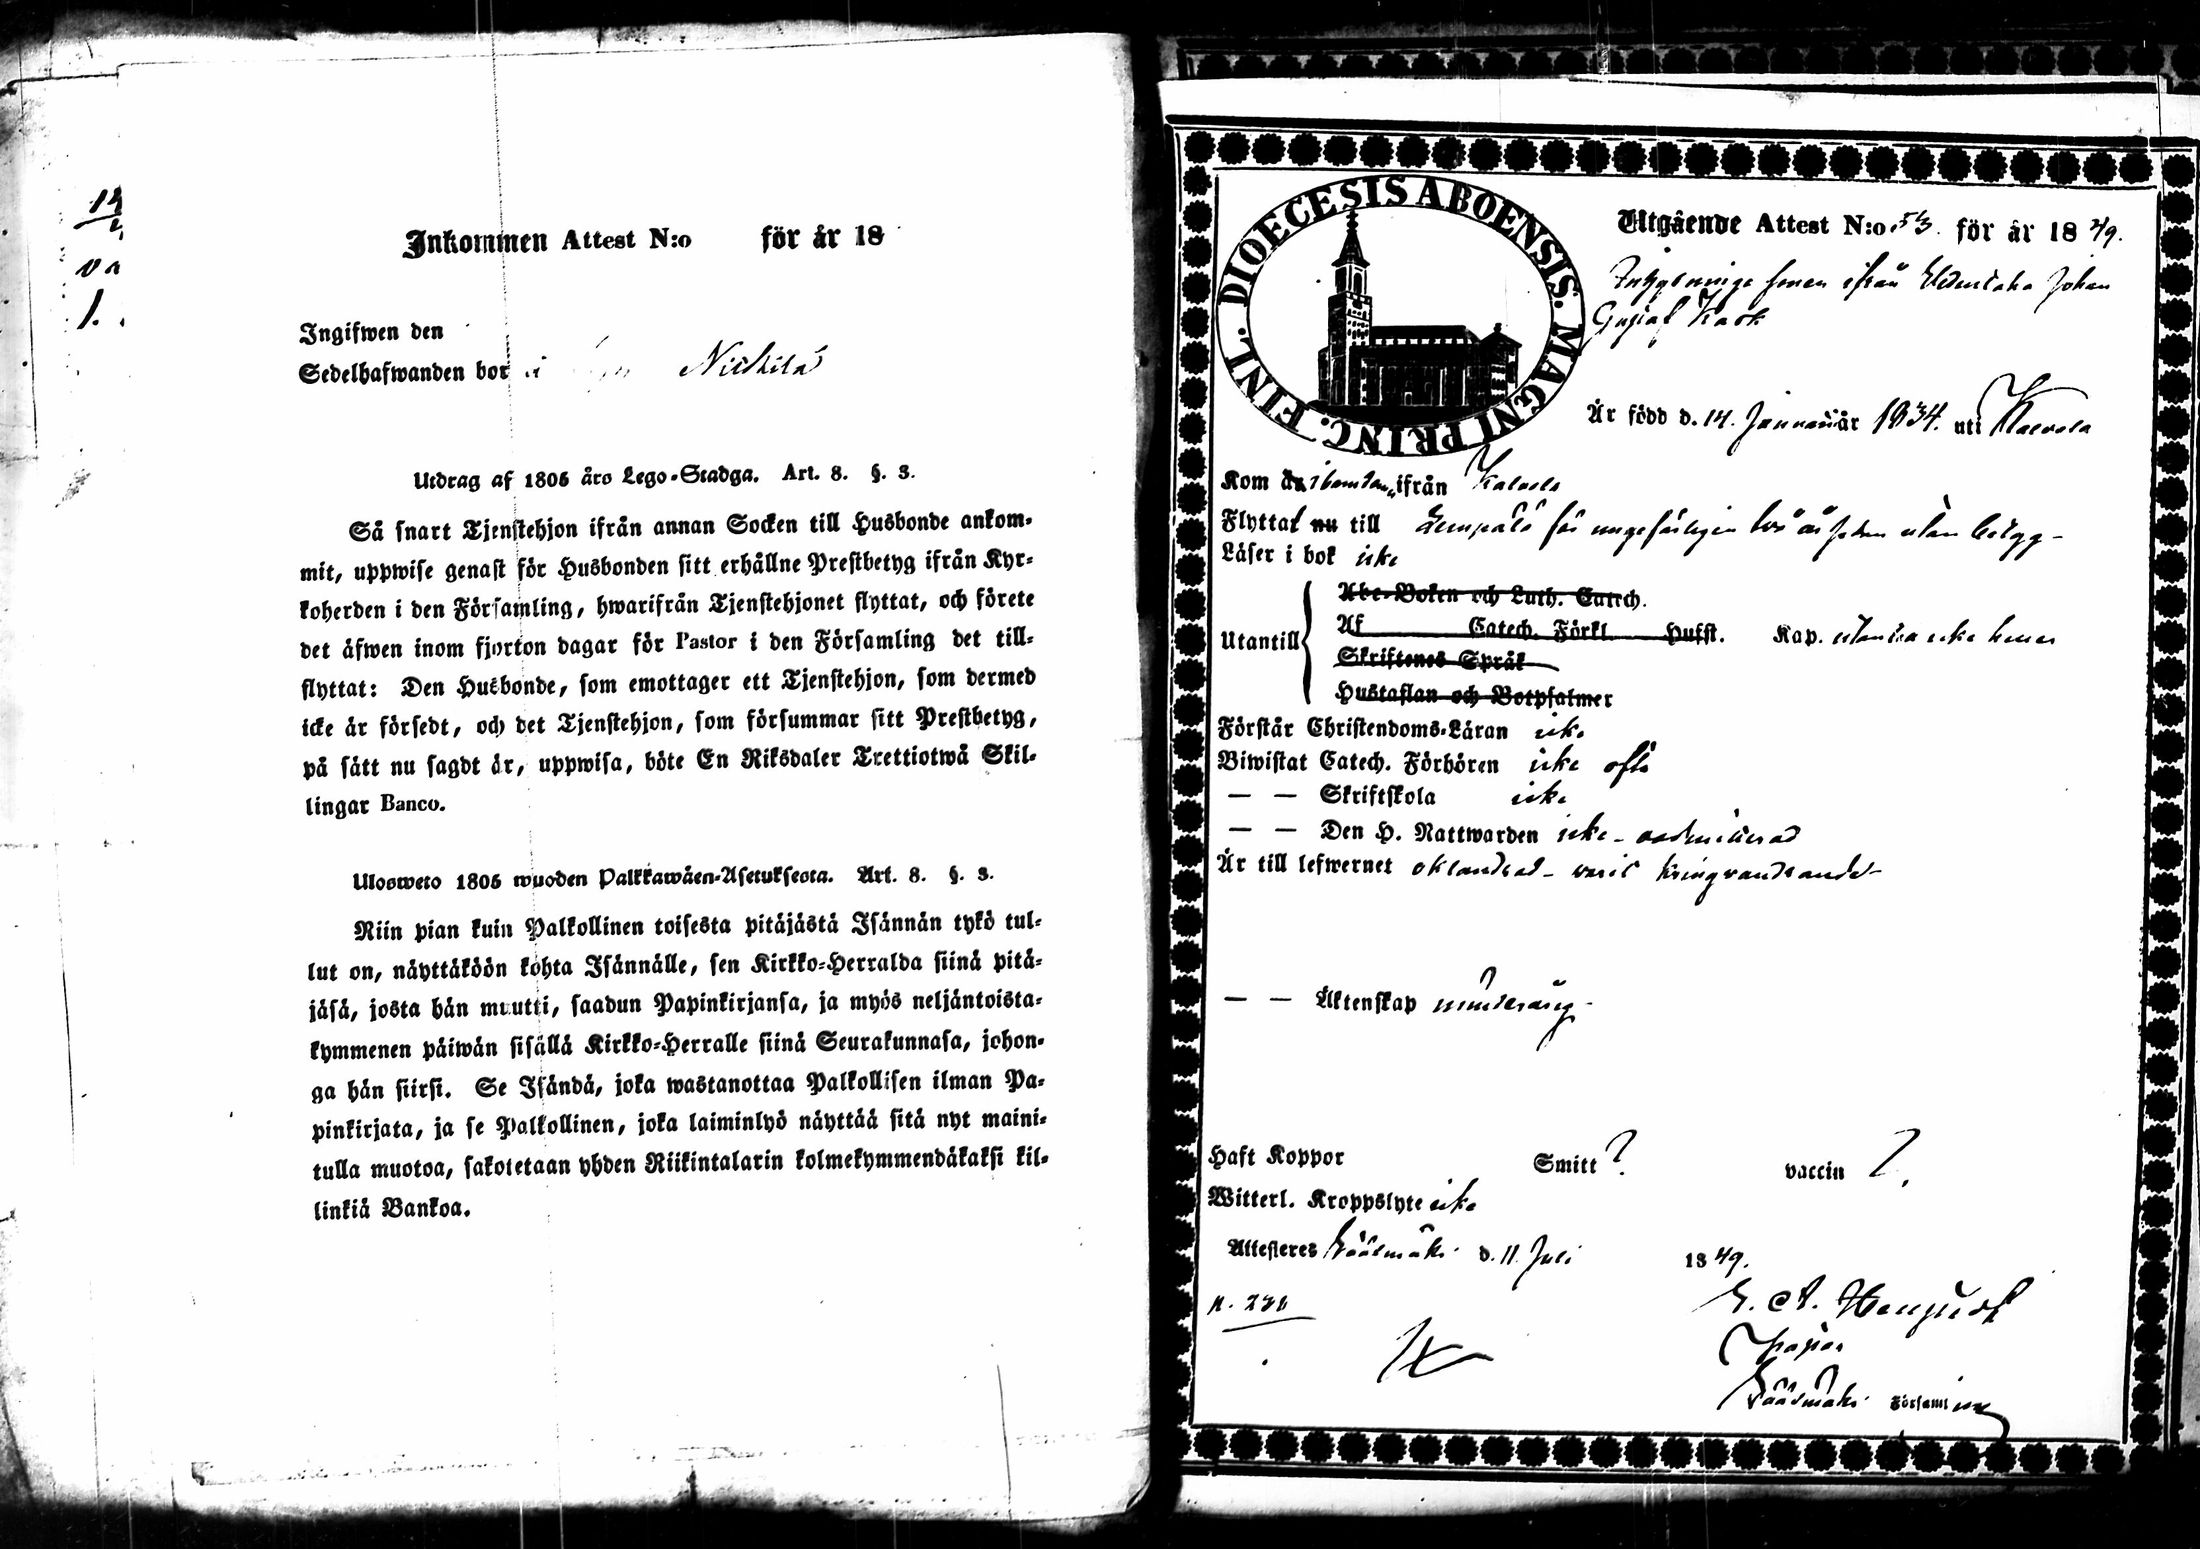 Inkommen Attest N:o för år 18
Ingifwen den
Sedelhafwanden bor i
Utdrag af 1805 års Lego-Stadga. Art. 8. §. 3.
Så snart Tjenstehjon ifrån annan Socken till Husbonde ankom-
mit, uppwise genast för Husbonden sitt erhållne Prestbetyg ifrån Kyr-
koherden i den Församling, hwarifrån Tjenstehjonet flyttat, och förete
det äfwen inom fjorton dagar för Pastor i den Församling det till-
flyttat: Den Husbonde, som emottager ett Tjenstehjon, som dermed
icke är försedt, och det Tjenstehjon, som försummar sitt Prestbetyg,
på sätt nu sagdt är, uppwisa, böte En Riksdaler Trettiotwå Skil-
lingar Banco.
Ulosweto 1805 wuoden Palkkawäen-Asetuksesta. Art. 8. §. 3.
Niin pian kuin Palkollinen toisesta pitäjästä Isännän tykö tul-
lut on, näyttäköön kohta Isännälle, sen Kirkko-Herralda siinä pitä-
jäsä, josta hän muutti, saadun Papinkirjansa, ja myös neljäntoista-
kymmenen päiwän sisällä Kirkko-Herralle siinä Seurakunnasa, johon-
ga hän siirsi. Se Isändä, joka wastanottaa Palkollisen ilman Pa-
pinkirjata, ja se Palkollinen, joka laiminlyö näyttää sitä nyt maini-
tulla muotoa, sakotetaan yhden Riikintalarin kolmekymmendäkaksi kil-
linkiä Bankoa.
DIOECESIS ABOENSIS. MAGNI PRINC. FINL.
Utgående Attest N:o 53. för år 1849.
Johan
Gustaf
Är född d. 14. Januari år 1834. uti Kalvola
Kom ifrån Kalvola
Flyttat nu till Lempälä för ungefärligen två år sedan utan betyg -
Läser i bok icke
Utantill
Abc-Boken och Luth. Catech.
Af Catech. Förkl. Hufst. Kap. utantill icke
Skriftenes Språk
Hustaflan och Botpsalmer
Förstår Christendoms-Läran icke
Biwistat Catech. Förhören icke ofta
— — Skriftskola icke
— — Den H. Nattwarden icke - admitterad
Är till lefwernet oklandrad - varit kringvandrande
— — Äktenskap minderårig -
Haft Koppor Smitt ? vaccin ?.
Witterl. Kroppslyte icke
Attesteres Sääksmäki d. 11. Juli 1849.
Pastor
Sääksmäki Församling